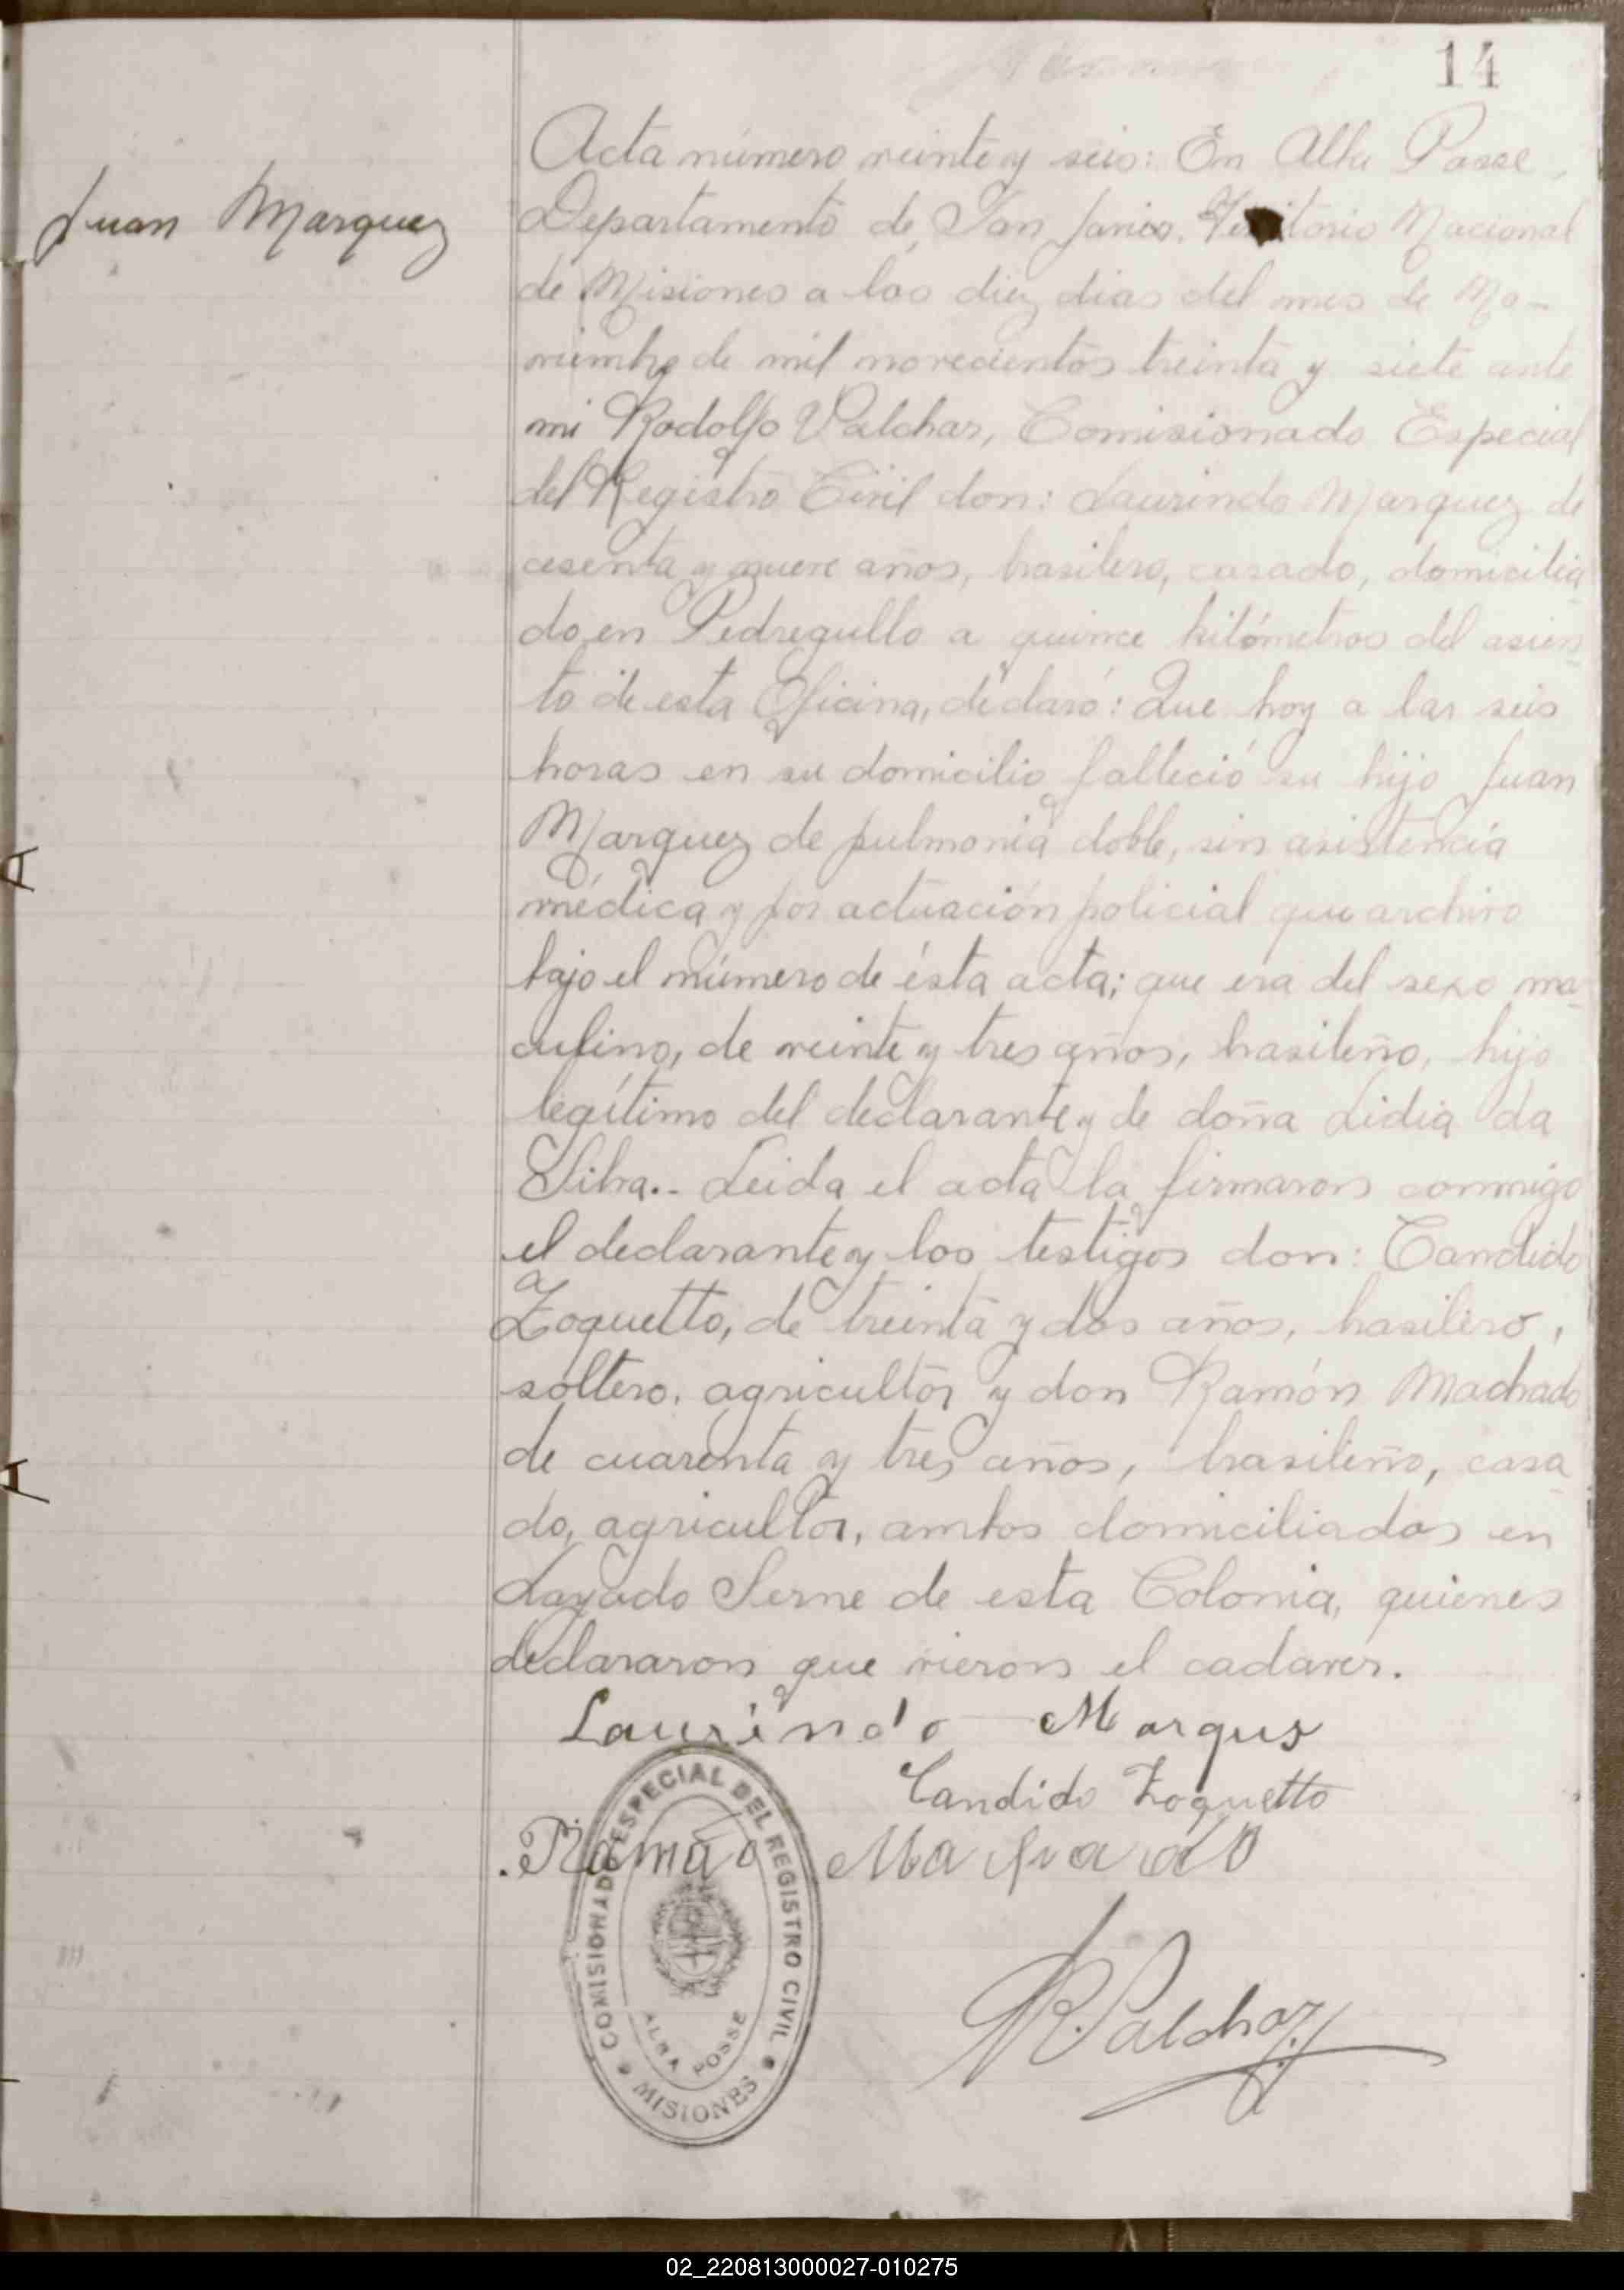 14
Juan Marquez
Acta número veinte y seis: En Alba Posse,
Departamento de San Javier. Territorio Nacional
de Misiones a los diez dias del mes de No-
viembre de mil novecientos treinta y siete ante
mi Rodolfo Valchar, Comisionado Especial
del Registro Civil don: Laurindo Marquez de
cesenta y nueve años, brasilero, casado, domicilia
do en Pedregullo a quince kilómetros del asien
to de esta Oficina, declaró: Que hoy a las seis
horas en su domicilio falleció su hijo Juan
Marquez de pulmonia doble, sin asistencia
médica y por actuación policial que archivo
bajo el número de ésta acta; que era del sexo ma
culino, de veinte y tres años, brasileño, hijo
legítimo del declarante y de doña Lidia da
Silva.- Leida el acta la firmaron conmigo
el declarante y los testigos don: Candido
Zoquetto, de treinta y dos años, brasilero,
soltero, agricultor y don Ramón Machado
de cuarenta y tres años, brasileño, casa
do, agricultor, ambos domiciliados en
Layado Serne de esta Colonia, quienes
declararon que vieron el cadaver.
Laurindo Marqus
Candido Zoquetto
Ramão
COMISIONADO ESPECIAL DEL REGISTRO CIVIL
ALBA POSSE
MISIONES
02_220813000027-010275